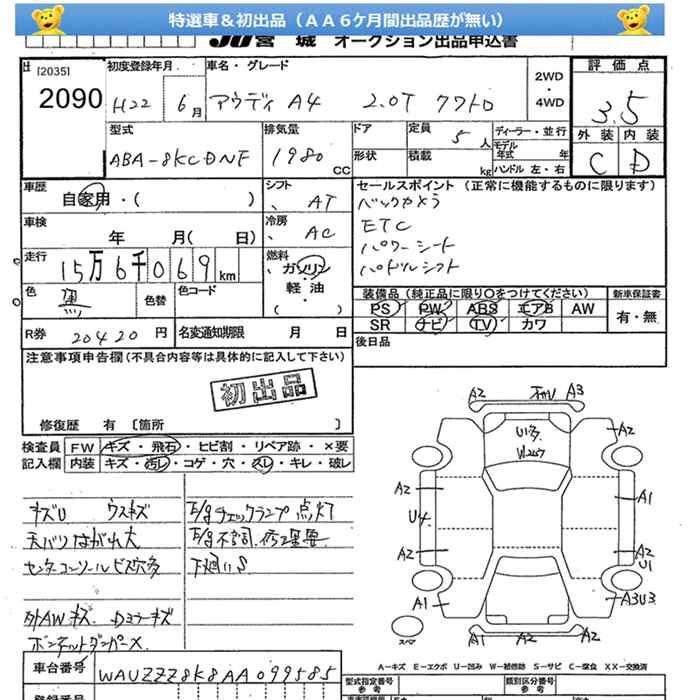 特選車＆初出品（ＡＡ６ケ月間出品歴が無い）
JU宮城 オークション出品申込書
[2035] 初度登録年月 車名・グレード 2WD・4WD 評価点
2090 H22 6月 アウディ A4 2.0T クワトロ 3.5
型式 排気量 ドア 定員 5人 ディーラー・並行 外装 内装
ABA-8KCDNF 1980 CC 形状 積載 kg モデル年式 年 ハンドル 左・右 C D
車歴 自家用・( ) シフト AT セールスポイント (正常に機能するものに限ります)
バックカメラ
車検 年 月( 日) 冷房 AC ETC
パワーシート
走行 15万6千069km 燃料 ガソリン・軽油 パドルシフト
色 黒 色替 色コード 装備品 (純正品に限り○をつけてください) 新車保証書
PS PW ABS エアB AW 有・無
R券 20420円 名変通知期限 月 日 SR ナビ TV カワ
注意事項申告欄(不具合内容等は具体的に記入して下さい) 後日品
初出品
修復歴 有 [箇所 ]
検査員記入欄 FW キズ・飛石・ヒビ割・リペア跡・×要
内装 キズ・汚レ・コゲ・穴・スレ・キレ・破レ
キズU ウスキズ E/gチェックランプ点灯
天バリはがれ大 E/g不調.修理要
センターコンソールビス穴多 下廻りS
外AWキズ Dミラーキズ
A2 A3
A2
U多
A2 A1
U4
A2 A2
U1
A1 A3U3
スペア A1 A2 A2
A－キズ E－エクボ U－凹み W－補修跡 S－サビ C－腐食 XX－交換済
車台番号 WAUZZZ8K8AA099585 型式指定番号 参考 類別区分番号 参考
登録番号